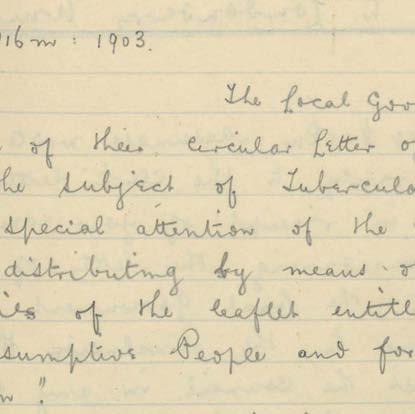 16m : 1903.
The Local Gov
of their circular Letter o
he subject of Tubercula
special attention of the
distributing by means o
ies of the leaflet entitl
sumptive People and for
n".